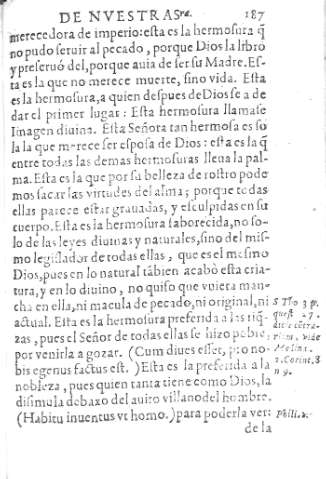 DE NVESTRA Sra. 187
merecedora de imperio: esta es la hermosura q̃
no pudo seruir al pecado, porque Dios la librò
y preseruò del, porque auia de ser su Madre. Es-
ta es la que no merece muerte, sino vida. Esta
es la hermosura, a quien despues de Dios se a de
dar el primer lugar: Esta hermosura llamase
Imagen diuina. Esta Señora tan hermosa es so
la la que merece ser esposa de Dios: esta es la q̃
entre todas las demas hermosuras lleua la pal-
ma. Esta es la que por su belleza de rostro pode
mos sacar las virtudes del alma; porque todas
ellas parece estar grauadas, y esculpidas en su
cuerpo. Esta es la hermosura faborecida, no so-
lo de las leyes diuinas y naturales, sino del mis-
mo legislador de todas ellas, que es el mesmo
Dios, pues en lo natural tãbien acabò esta cria-
tura, y en lo diuino, no quiso que vuiera man-
cha en ella, ni macula de pecado, ni original, ni
actual. Esta es la hermosura preferida a las riq̃-
zas, pues el Señor de todas ellas se hizo pobre,
por venirla a gozar. (Cum diues esset, pro no-
bis egenus factus est.) Esta es la preferida a la
nobleza, pues quien tanta tiene como Dios, la
disimula debaxo del auito villano del hombre.
(Habitu inuentus vt homo.) para poderla ver:
de la
S Tho 3 p.
quest 27.
vide
Molina.
2. Corint. 8
n 9.
Phili. 2.